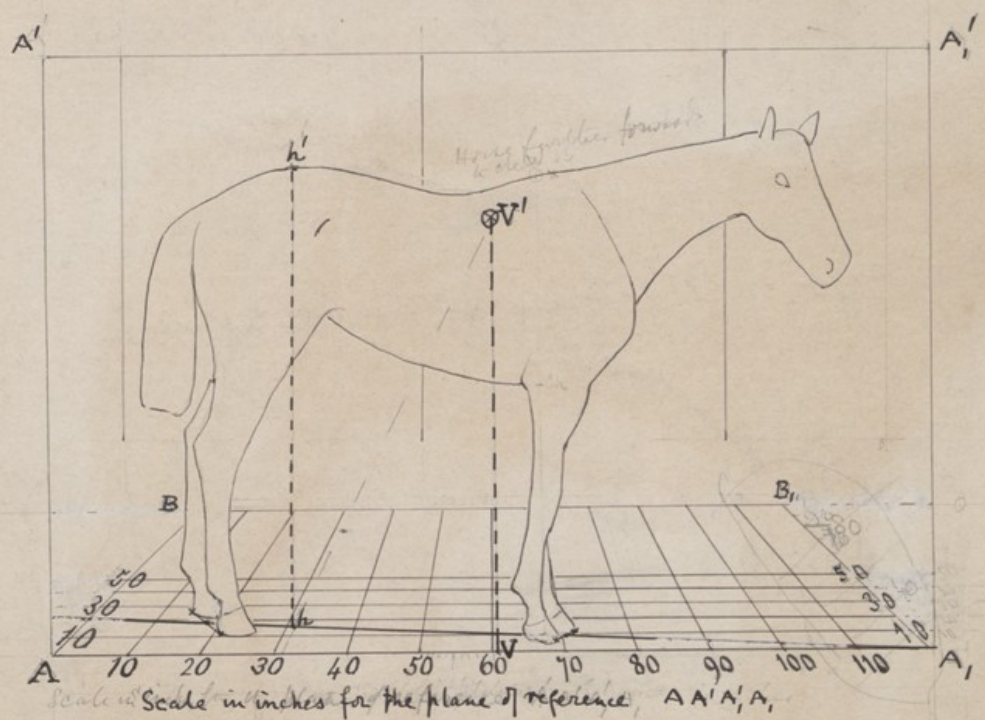 A' A₁'
Horse further forward
h'
V'
B B₁
50 50
30 30
10 h 10
A 10 20 30 40 50 60 V 70 80 90 100 110 A₁
Scale in inches for the plane of reference A A' A₁' A₁